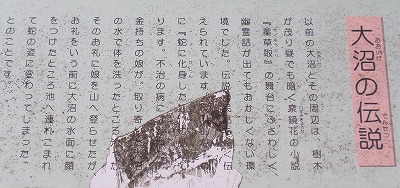 大沼の伝説
でんせつ
以前の大沼とその周辺は、樹木
が茂り昼でも暗く泉鏡花の小説
『薬草取』の舞台にふさわしく
幽霊話が出てもおかしくない環
境でした。伝説 伝
えられています
に『蛇に化身した
ります。不治の病に
金持ちの娘が、取り寄せ
の水で体を洗ったところ
そのお礼に娘を山へ登らせたが
お礼をいう前に大沼の水面に顔
をつけたところ池へ連れこまれ
て蛇の姿に変わってしまった、
とのことです。